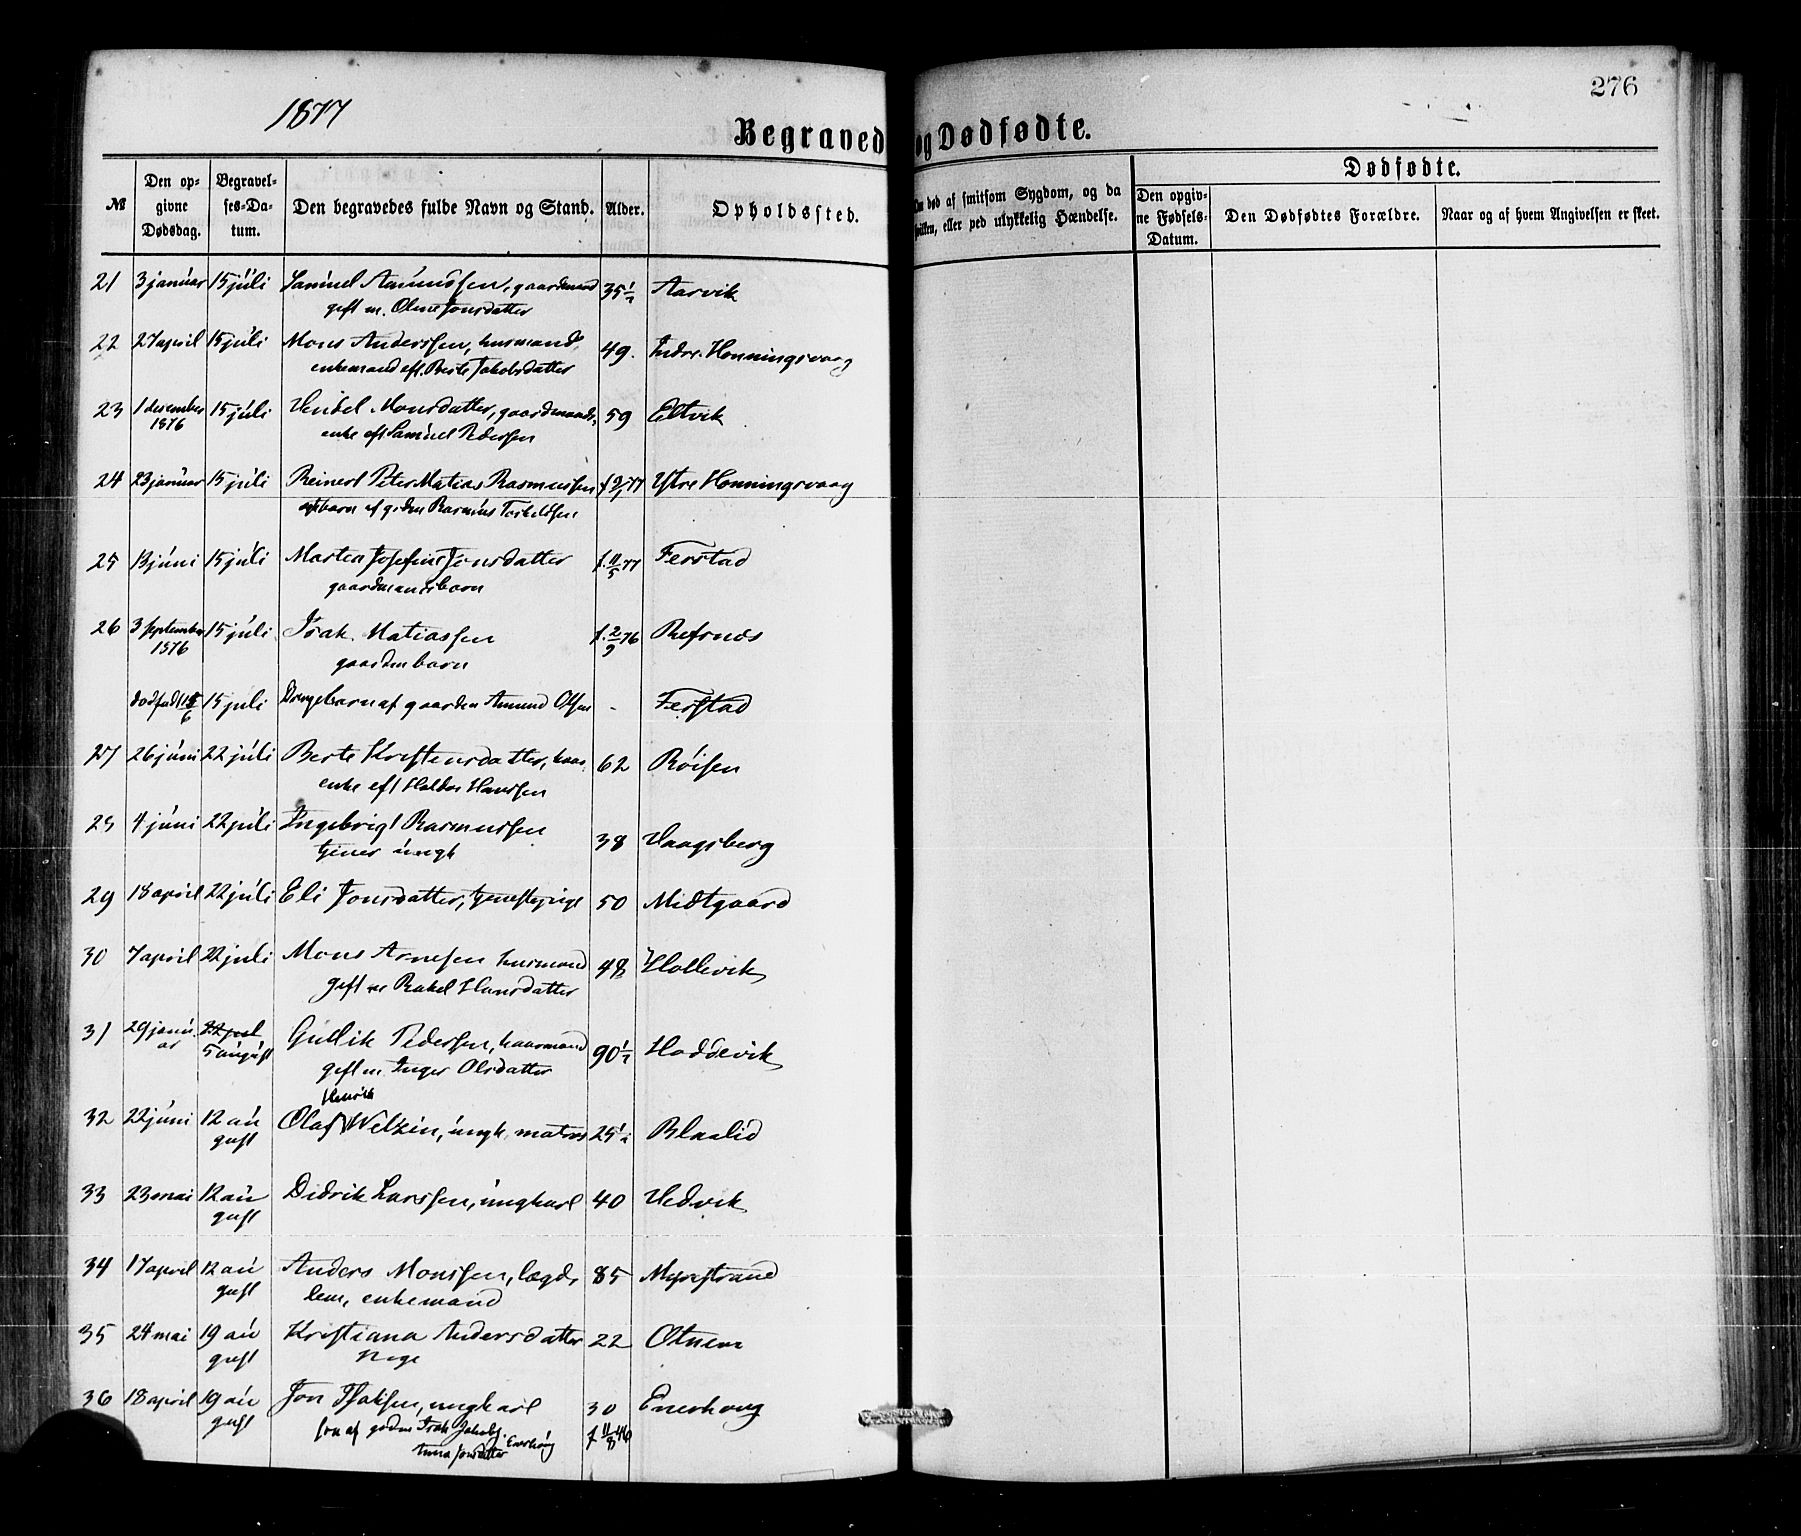 1877
276
Begravede og Dødfødte.
Dødfødte.
№ Den opgivne Dødsdag. Begravelses-Datum. Den begravedes fulde Navn og Stand. Alder. Opholdssted. død af smitsom Sygdom, og da eller ved ulykkelig Hændelse. Den opgivne Fødsels-Datum. Den Dødfødtes Forældre. Naar og af hvem Angivelsen er skeet.
21 3 januar 15 juli Samuel Aamundssen, gaardmand 35 1/2 Aarvik
gift m. Oline Jonsdatter
22 27 april 15 juli Mons Anderssen, husmand, 49. Indre Honningsvaag
enkemand eft. Berte Jakobsdatter
23 1 desember 15 juli Vendel Monsdatter, gaardmands, 59 Eltvik
1876 enke eft Samuel Pedersen
24 23 januar 15 juli Reinert Peter Matias Rasmussen f 2/1 77 Ytre Honningsvaag
barn af g.den Rasmus Torkeldsen
25 13 juni 15 juli Marten Josefine Jensdatter f. 11/5 77 Ferstad
gaardmansbarn
26 3 september 15 juli Isak Matiassen f. 2/9 76 Refsnes
1876 gaardm barn
dødfød 15 juli Drengebarn af gaardm Amund Olsen - Ferstad
27 26 juni 22 juli Berte Kristensdatter, kaar 62 Røisen
enke eft Haldor Hanssen
28 4 juni 22 juli Ingebrigt Rasmussen 38 Vaagsberg
tjener ungk
29 18 april 22 juli Eli Jonsdatter, tjenestepige 50 Midtgaard
30 7 april 22 juli Mons Arnesen husmand 48 Hollevik
gift m Rakel Hansdatter
31 29 januar 22 juli Gullik Pedersen, kaarmand 90 1/2 Hoddevik
5 august gift m. Inger Olsdatter
Henrik
32 22 juni 12 august Olaf Welzin, ungk, matros 25 1/2 Blaalid
33 23 mai 12 august Didrik Larssen, ungkarl 40 Vedvik
34 17 april 12 august Anders Monssen, lægds 85 Myrestrand
lem, enkemand
35 24 mai 19 august Kristiana Andersdatter 22 Otnem
Pige
36 18 april 19 august Jon Isaksen, ungkarl 30 Enerhaug
søn af gaardm Isak Jakobs. Enerhaug f 11/8 46
Anna Jonsdatter